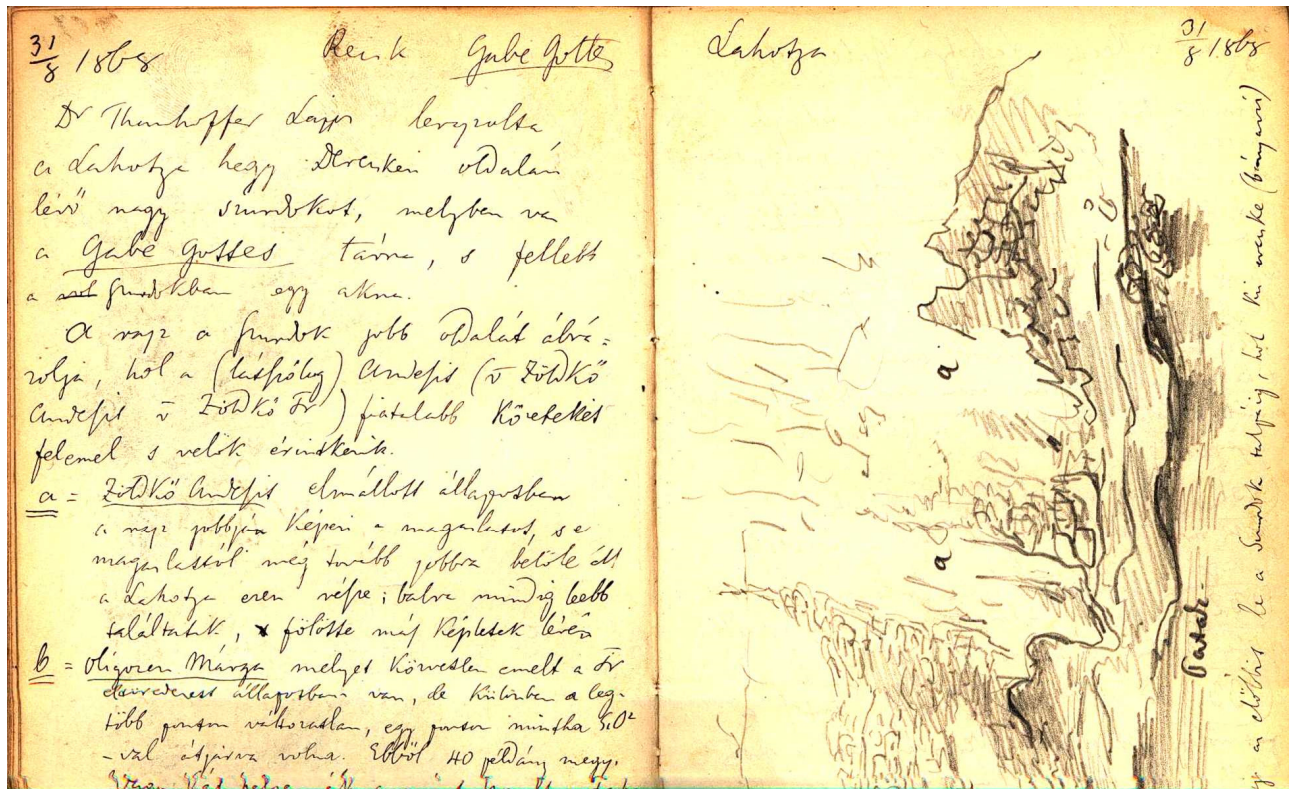 31/8 1868 Recsk Gabe Gottes
Dr Thanhoffer Lajos lerajzolta
a Lahotza hegy Derecskei oldalán
lévő nagy szurdokot, melyben van
a Gabe Gottes tárna, s felette
a szurdokban egy akna.
A rajz a szurdok jobb oldalát ábrá=
zolja, hol a (látszólag) Andesit (v Zöldkő
Andesit v Zöldkő Tr) fiatalabb Kőzeteket
felemel s velök érintkezik.
a = Zöldkő Andesit elmállott állapotban
a rajz jobbján Képezi a magaslatot, s e
magaslattól még tovább jobbra belőle áll
a Lahotza ezen része; balra mindig lejebb
találtatik, fölötte más Képletek lévén
b = Oligozen Márga melyet Közvetlen emelt a Tr
állapotban van, de Különben a leg-
több ponton változatlan, egy ponton mintha SiO²
-val átjárva volna. Ebből 40 példány megy.
Lahotza 31/8 1868
a
a
Patak
az előbbit le a Szurdok talpáig, hol Kis erecske (bányavíz)